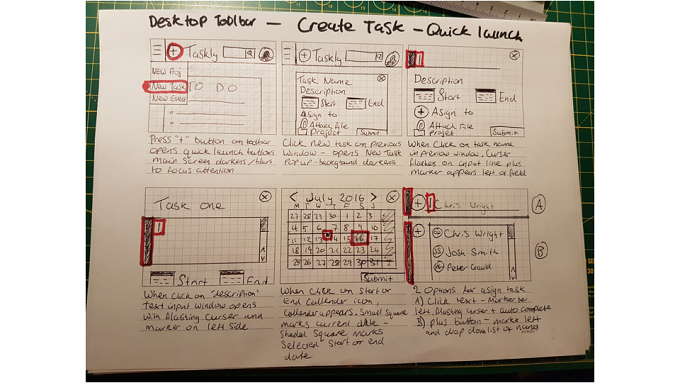 Desktop Toolbar - Create Task - Quick launch
+ Taskly
New Proj
New Task
New Event
TO DO
Press "+" button on toolbar
opens quick launch buttons
main screen darkens/blurs
to focus attention
+ Taskly
Task Name
Description
Start End
Asign to
Attach File
Project Submit
Click new task on previous
window - opens New Task
Pop up - background darkens
Description
Start End
Asign to
Attach File
Project Submit
When click on task name
in previow window, Curser
flashes on input line plus
marker appears left of field
Task one
Start End
When click on "description"
text input window opens
with flasing Curser and
marker on left side
< July 2016 >
M T W T F S S
27 28 29 30 1 2 3
4 5 6 7 8 9 10
11 12 13 14 15 16 17
18 19 20 21 22 23 24
25 26 27 28 29 30 31
Submit
When Click on Start or
End Callender icon,
Callender appears. Small Square
marks current date -
Shaded Square marks
Selected Start or end
date
+ Chris Wright A
+ Chris Wright
Josh Smith
Peter
B
2 Options for asign task
A) Click text - Marker bar
left, flasing curser + auto complete
B) plus button - marke left
and drop down list of names